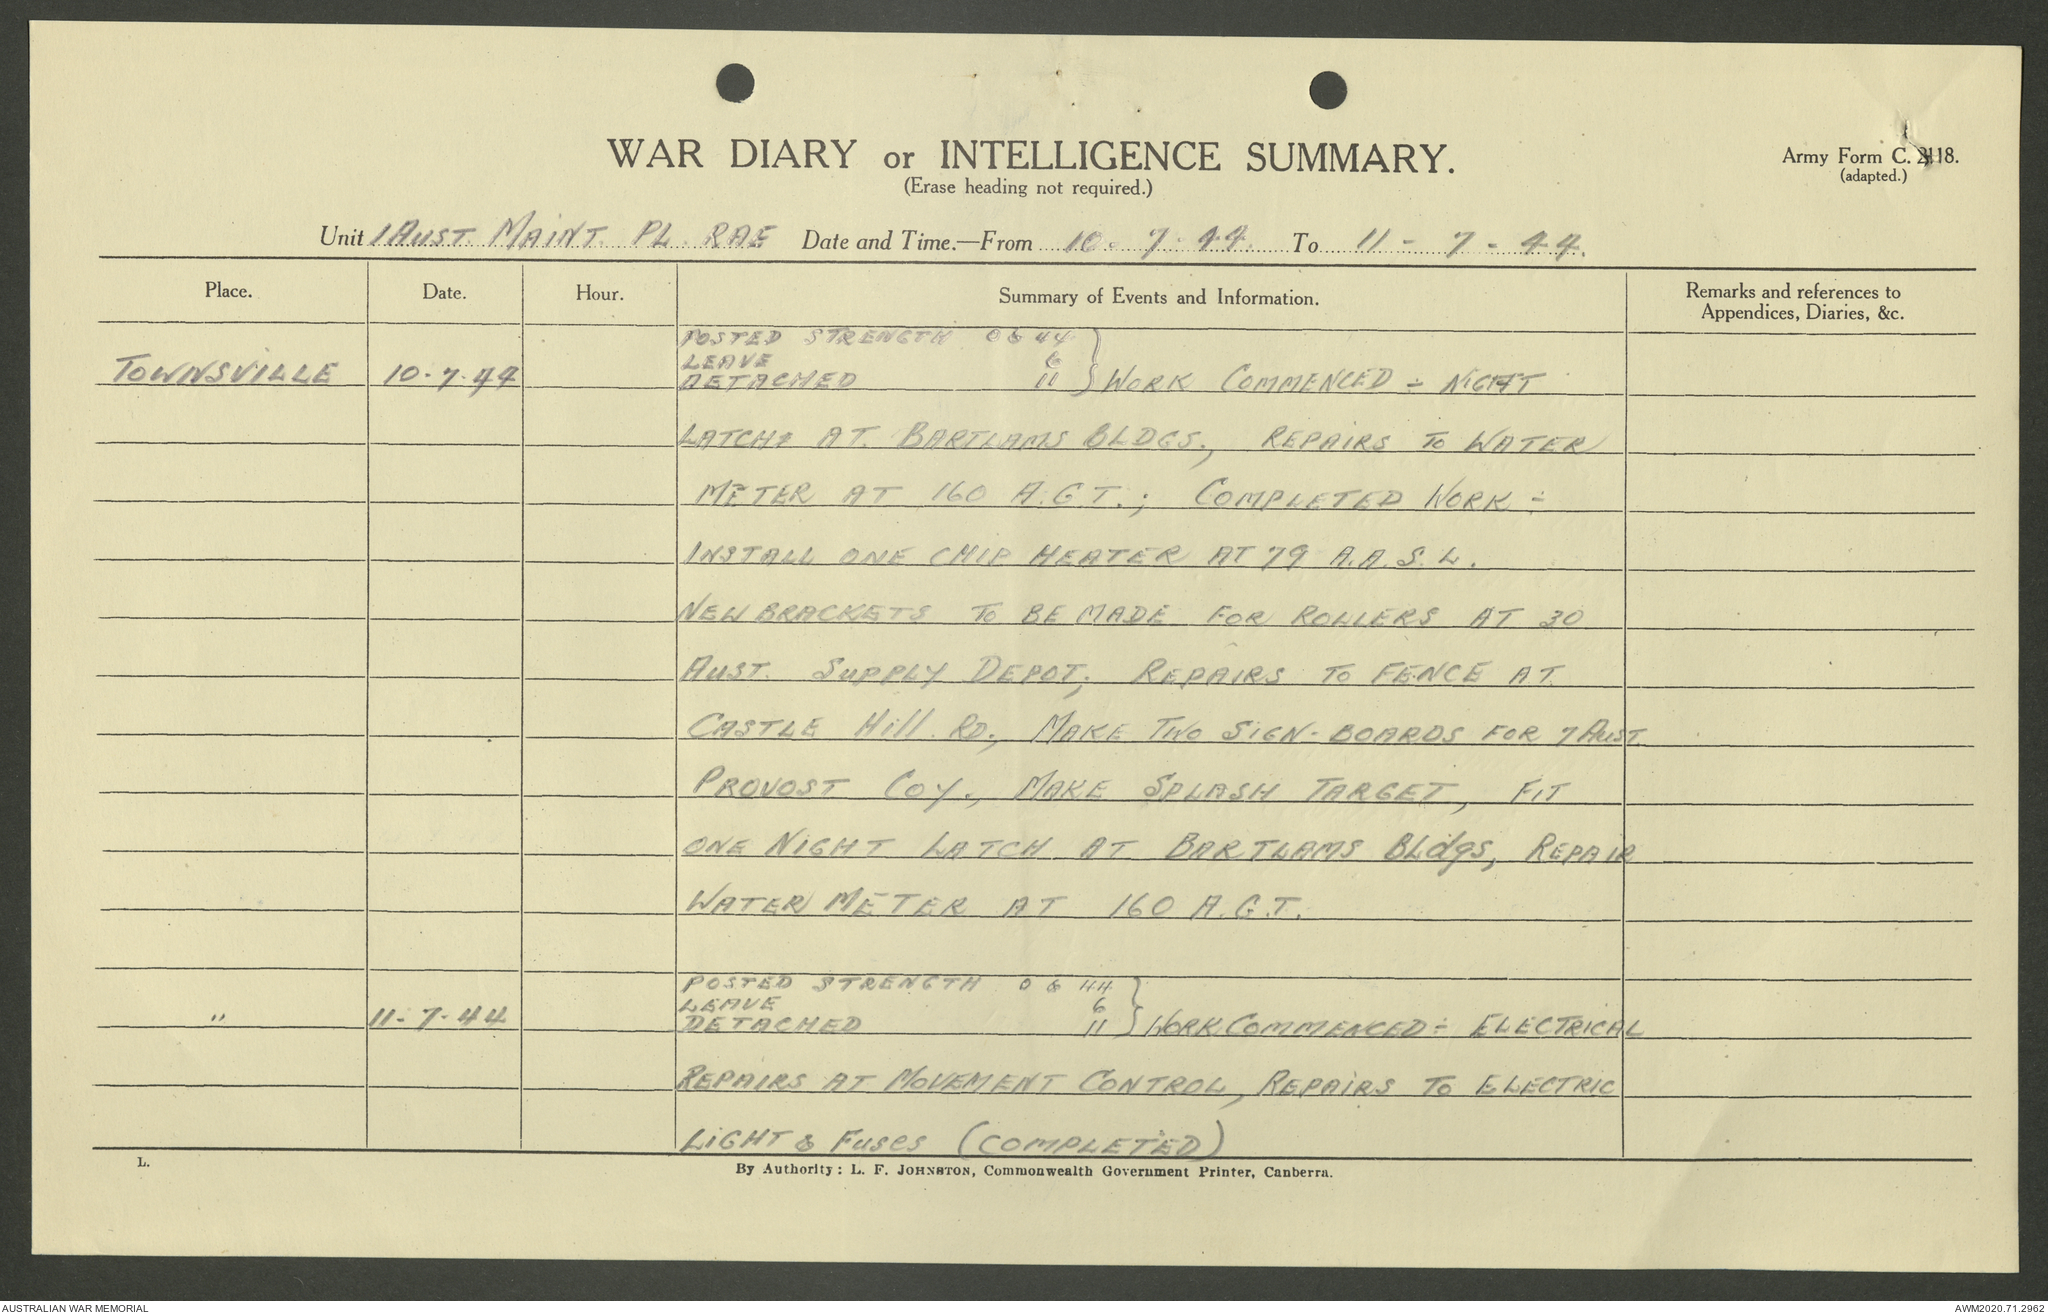 WAR DIARY or INTELLIGENCE SUMMARY.
(Erase heading not required.)
Army Form C. 2118.
(adapted.)
Unit 1 AUST. MAINT. PL. RAE Date and Time.—From 10. 7. 44. To 11 - 7 - 44.
Place. Date. Hour. Summary of Events and Information. Remarks and references to
Appendices, Diaries, &c.
POSTED STRENGTH 0 & 44
LEAVE 6
TOWNSVILLE 10-7-44 DETACHED 11 } WORK COMMENCED ÷ NIGHT
LATCH AT BARTLAMS BLDGS., REPAIRS TO WATER
METER AT 160 A.G.T.; COMPLETED WORK ÷
INSTALL ONE CHIP HEATER AT 79 A.A.S.L.
NEW BRACKETS TO BE MADE FOR ROLLERS AT 30
AUST. SUPPLY DEPOT, REPAIRS TO FENCE AT
CASTLE Hill RD., MAKE TWO SIGN-BOARDS FOR 7 AUST.
PROVOST COY., MAKE SPLASH TARGET, FIT
ONE NIGHT LATCH AT BARTLAMS BLdgs, REPAIR
WATER METER AT 160 A.G.T.
POSTED STRENGTH 0 & 44
LEAVE 6
" 11-7-44 DETACHED 11 } WORK COMMENCED ÷ ELECTRICAL
REPAIRS AT MOVEMENT CONTROL, REPAIRS TO ELECTRIC
LIGHT & FUSES (COMPLETED)
L.
By Authority: L. F. JOHNSTON, Commonwealth Government Printer, Canberra.
AUSTRALIAN WAR MEMORIAL
AWM2020.71.2962